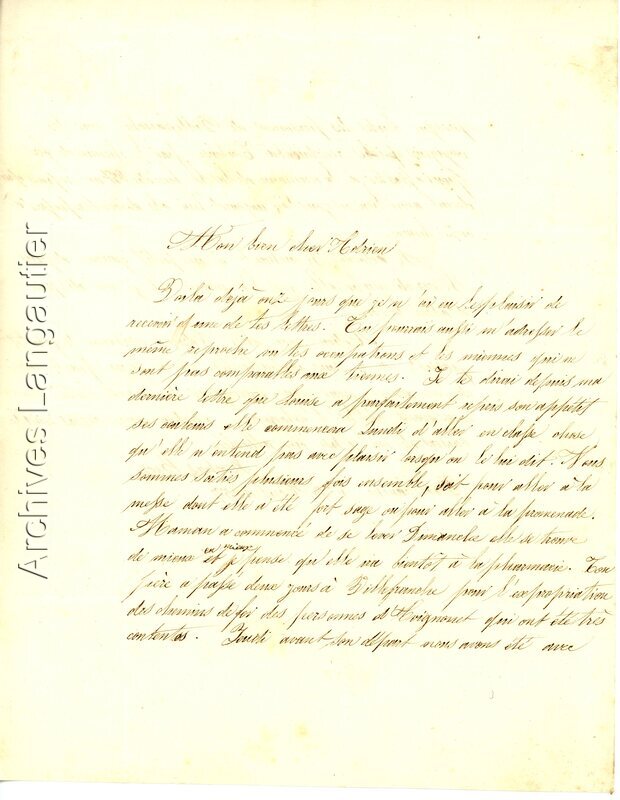 Mon bien cher Adrien
Voilà déjà onze jours que je n'ai eu le plaisir de
recevoir d'une de tes lettres. Tu pourrais aussi m'adresser le
même reproche tes occupations et les miennes qui ne
sont pas comparables aux tiennes. Je te dirai depuis ma
dernière lettre que Louise a parfaitement repris son appétit
ses couleurs elle commencera Lundi d'aller en classe chose
qu'elle n'entend pas avec plaisir lorsqu'on le lui dit. Nous
sommes sorties plusieurs fois ensemble, soit pour aller à la
messe dont elle a été fort sage ou pour aller à la promenade.
Maman a commencé de se lever Dimanche elle se trouve
de mieux en mieux et je pense qu'elle ira bientôt à la pharmacie. Ton
père a passé deux jours à Villefranche pour l'expropriation
des chemins de fer des personnes d'Avignonet qui ont été très
contentes. Jeudi avant son départ nous avons été avec
Archives Langautier